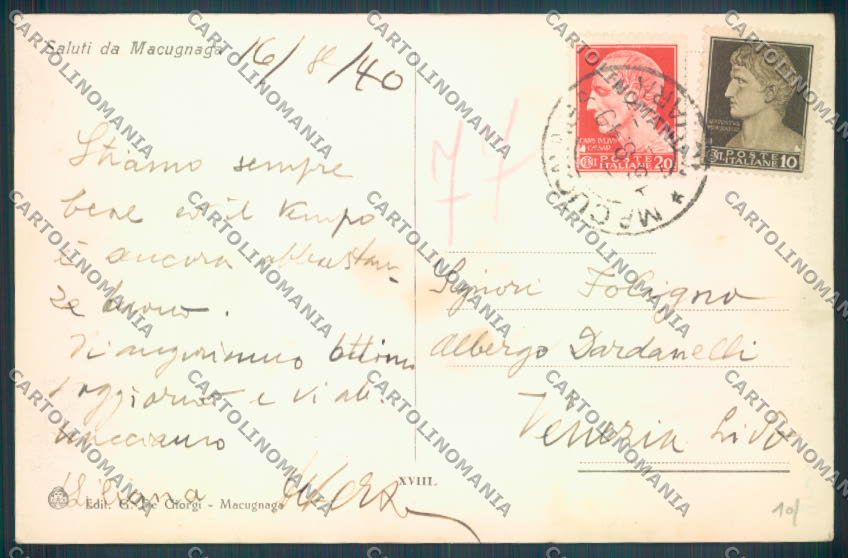 Saluti da Macugnaga
16/8/40
Stiamo sempre
bene ed il tempo
è ancora abbastan-
za buono.
Vi auguriamo ottimo
soggiorno e vi ab.
bracciamo
Liliana
77
CAIVS IVLIVS
CAESAR
POSTE
ITALIANE 20
POSTE
ITALIANE 10
Signori Foligno
Albergo Dardanelli
Venezia Lido
XVIII.
Edit. G. De Giorgi - Macugnaga
10/
CARTOLINOMANIA